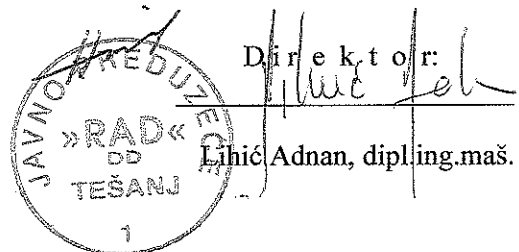 D i r e k t o r:
Lihić Adnan, dipl.ing.maš.
JAVNO PREDUZEĆE
»RAD«
DD
TEŠANJ
1